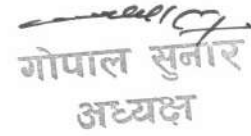 गोपाल सुनार
अध्यक्ष